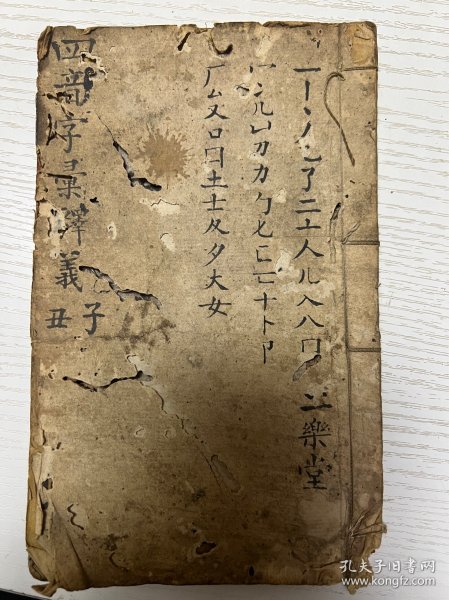 一丨丶丿乙亅二亠人儿入八冂
冖冫几凵刀力勹匕匚匸十卜卩
厂厶又口囗土士夂夕大女
二樂堂
四音字彙釋義
子
丑
孔夫子旧书网
www.kongfz.com